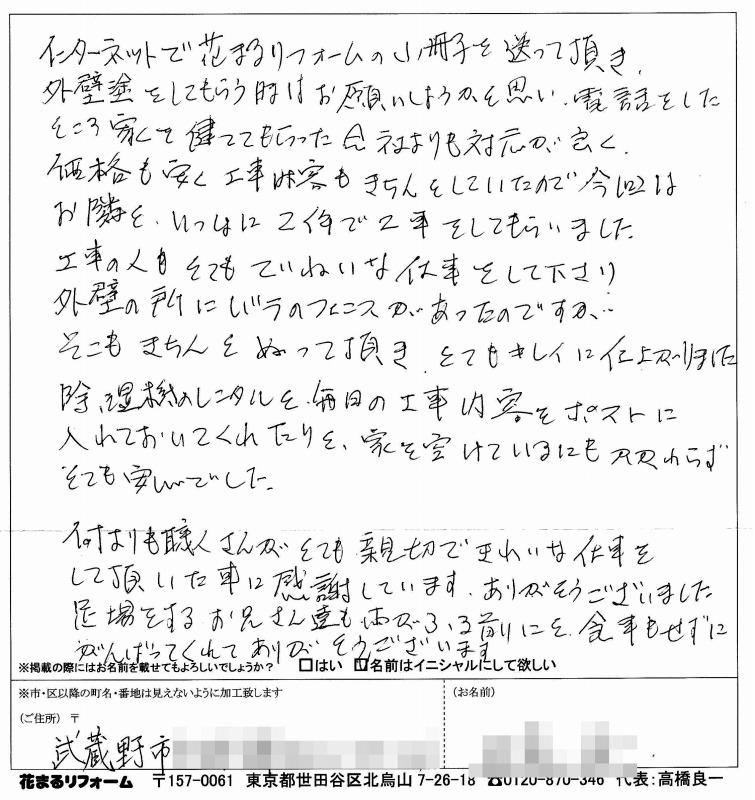 インターネットで花まるリフォームの小冊子を送って頂き、
外壁塗をしてもらう時はお願いしようかと思い、電話をした
ところ家を建ててもらった会社よりも対応が良く、
価格も安く工事内容もきちんとしていたので今回は
お隣と、いっしょに2件で工事をしてもらいました
工事の人もとてもていねいな仕事をして下さり
外壁の所にバラのフェンスがあったのですが…
そこもきちんとぬって頂き、とてもキレイに仕上がりました
除湿機のレンタルと、毎日の工事内容をポストに
入れておいてくれたりと、家を空けているにも関わらず
とても安心でした。
何よりも職人さんがとても親切できれいな仕事を
して頂いた事に感謝しています。ありがとうございました
足場をするお兄さん達も雨がふる前にと、食事もせずに
がんばってくれてありがとうございます
※掲載の際にはお名前を載せてもよろしいでしょうか? □はい ☑名前はイニシャルにして欲しい
※市・区以降の町名・番地は見えないように加工致します
(ご住所) 〒
(お名前)
武蔵野市
花まるリフォーム 〒157-0061 東京都世田谷区北烏山 7-26-18 ☎0120-870-346 代表:高橋良一